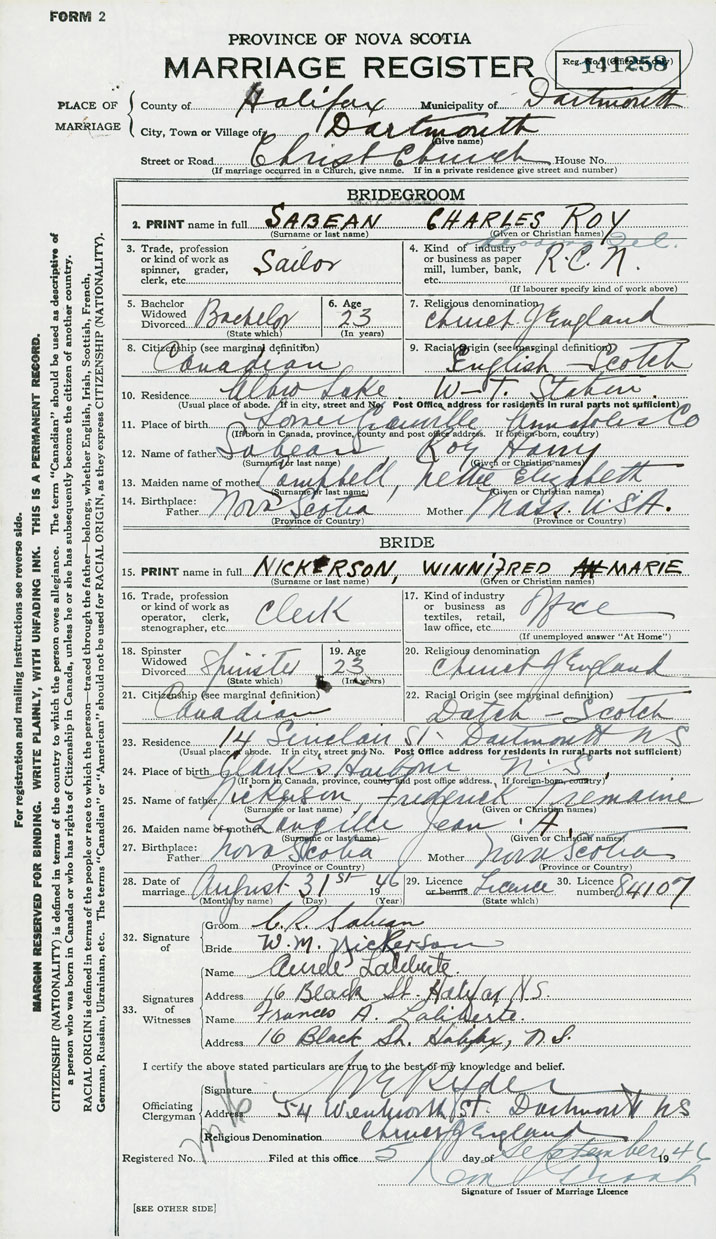 FORM 2
PROVINCE OF NOVA SCOTIA
MARRIAGE REGISTER
Reg. No. (Office use only)
141258
PLACE OF MARRIAGE
County of Halifax Municipality of Dartmouth
City, Town or Village of Dartmouth
(Give name)
Street or Road Christ Church House No.
(If marriage occurred in a Church, give name. If in a private residence give street and number)
BRIDEGROOM
2. PRINT name in full SABEAN CHARLES ROY
(Surname or last name) (Given or Christian names)
3. Trade, profession or kind of work as spinner, grader, clerk, etc. Sailor
4. Kind of industry or business as paper mill, lumber, bank, etc. R.C.N.
(If labourer specify kind of work above)
5. Bachelor Widowed Divorced Bachelor
(State which)
6. Age 23
(In years)
7. Religious denomination Church of England
8. Citizenship (see marginal definition) Canadian
9. Racial Origin (see marginal definition) English - Scotch
10. Residence Albro Lake W-T. Station
(Usual place of abode. If in city, street and No. Post Office address for residents in rural parts not sufficient)
11. Place of birth Lower Granville Annapolis Co
(If born in Canada, province, county and post office address. If foreign-born, country)
12. Name of father Sabean Roy Harry
(Surname or last name) (Given or Christian names)
13. Maiden name of mother Campbell, Nettie Elizabeth
(Surname or last name) (Given or Christian names)
14. Birthplace: Father Nova Scotia Mother Mass. U.S.A.
(Province or Country) (Province or Country)
BRIDE
15. PRINT name in full NICKERSON, WINNIFRED MARIE
(Surname or last name) (Given or Christian names)
16. Trade, profession or kind of work as operator, clerk, stenographer, etc. Clerk
17. Kind of industry or business as textiles, retail, law office, etc. Office
(If unemployed answer "At Home")
18. Spinster Widowed Divorced Spinster
(State which)
19. Age 23
(In years)
20. Religious denomination Church of England
21. Citizenship (see marginal definition) Canadian
22. Racial Origin (see marginal definition) Dutch - Scotch
23. Residence 14 Sinclair St. Dartmouth NS
(Usual place of abode. If in city, street and No. Post Office address for residents in rural parts not sufficient)
24. Place of birth Clark's Harbour N.S.
(If born in Canada, province, county and post office address. If foreign-born, country)
25. Name of father Nickerson, Frederick Tremaine
(Surname or last name) (Given or Christian names)
26. Maiden name of mother Langille Jean A.
(Surname or last name) (Given or Christian names)
27. Birthplace: Father Nova Scotia Mother Nova Scotia
(Province or Country) (Province or Country)
28. Date of marriage August 31st 1946
(Month by name) (Day) (Year)
29. Licence or banns Licence
(State which)
30. Licence number 84107
32. Signature of
Groom C.R. Sabean
Bride W.M. Nickerson
33. Signatures of Witnesses
Name Aurele Laliberte
Address 16 Black St. Halifax N.S.
Name Frances A. Laliberte
Address 16 Black St. Halifax, N.S.
I certify the above stated particulars are true to the best of my knowledge and belief.
Officiating Clergyman
Signature Ryder
Address 54 Wentworth St. Dartmouth NS
Religious Denomination Church of England
Registered No. Filed at this office 5 day of September 1946
Signature of Issuer of Marriage Licence
[SEE OTHER SIDE]
For registration and mailing instructions see reverse side.
MARGIN RESERVED FOR BINDING. WRITE PLAINLY, WITH UNFADING INK. THIS IS A PERMANENT RECORD.
CITIZENSHIP (NATIONALITY) is defined in terms of the country to which the person owes allegiance. The term "Canadian" should be used as descriptive of
a person who was born in Canada or who has rights of Citizenship in Canada, unless he or she has subsequently become the citizen of another country.
RACIAL ORIGIN is defined in terms of the people or race to which the person—traced through the father—belongs, whether English, Irish, Scottish, French,
German, Russian, Ukrainian, etc. The terms "Canadian" or "American" should not be used for RACIAL ORIGIN, as they express CITIZENSHIP (NATIONALITY).